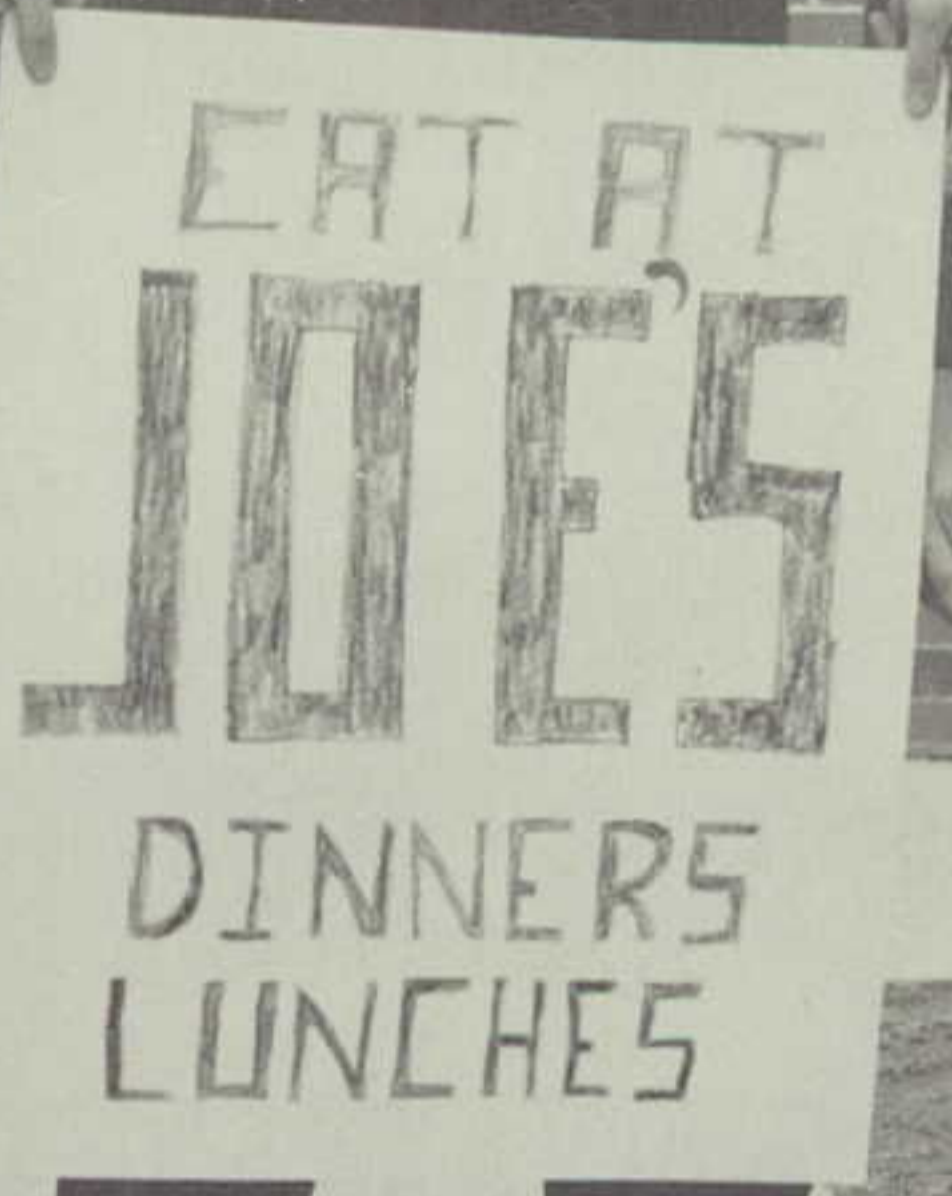 EAT AT
JOE'S
DINNERS
LUNCHES